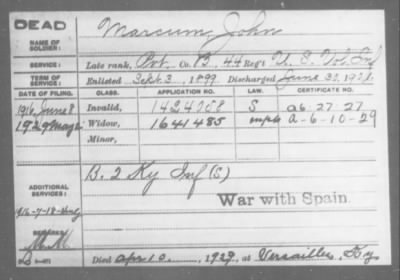 DEAD
NAME OF SOLDIER: Marcum, John
SERVICE: Late rank, Pvt. Co. B, 44 Reg't U. S. Vol. Inf
TERM OF SERVICE: Enlisted Sept. 3, 1899 Discharged June 30, 1901.
DATE OF FILING. CLASS. APPLICATION NO. LAW. CERTIFICATE NO.
1916 June 8 Invalid, 1424958 S a6.27.27
1929 May 2 Widow, 1641485 A-6-10-29
Minor,
ADDITIONAL SERVICES: B. 2 Ky Inf (S)
War with Spain
1916-7-18
REMARKS:
Died Apr 10, 1929, at Versailles, Ky.